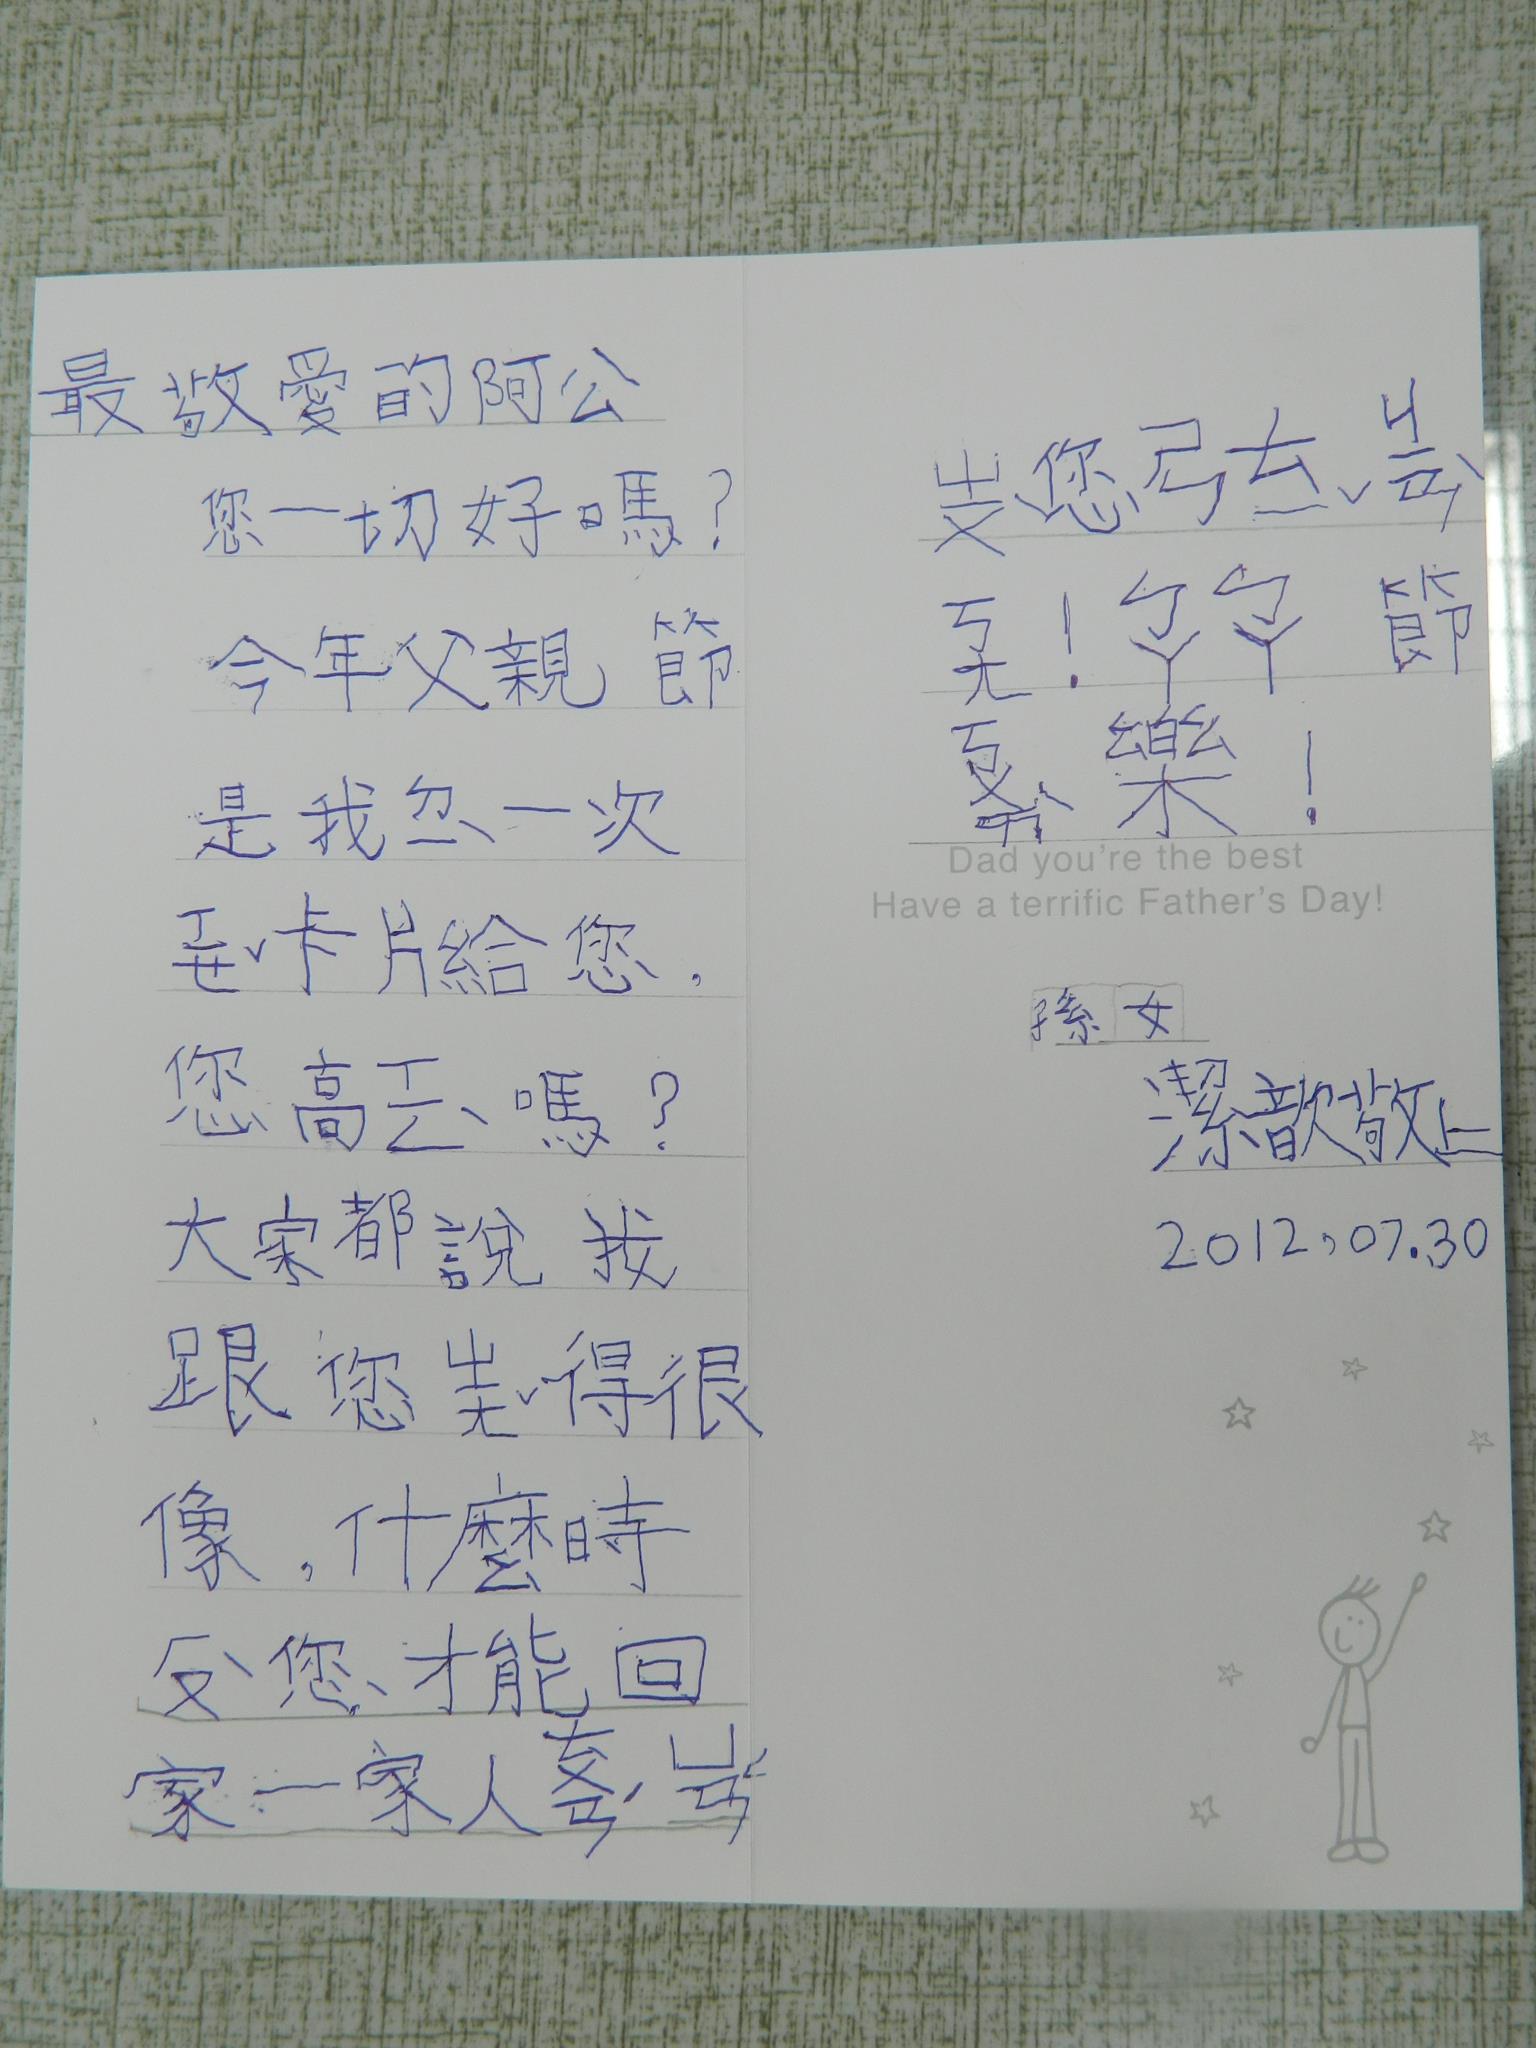 最敬愛的阿公
您一切好嗎？
今年父親節
是我ㄉㄧˋ一次
ㄒㄧㄝˇ卡片給您，
您高ㄒㄧㄥˋ嗎？
大家都說我
跟您ㄓㄤˇ得很
像，什麼時
ㄏㄡˋ您才能回
家一家人ㄊㄨㄢˊㄩㄢˊ
ㄓㄨˋ您ㄕㄣㄊㄧˇㄐㄧㄢˋ
ㄎㄤ！ㄅㄚㄅㄚ節
ㄎㄨㄞˋ樂！
Dad you're the best
Have a terrific Father's Day!
孫女
潔歆敬上
2012,07.30